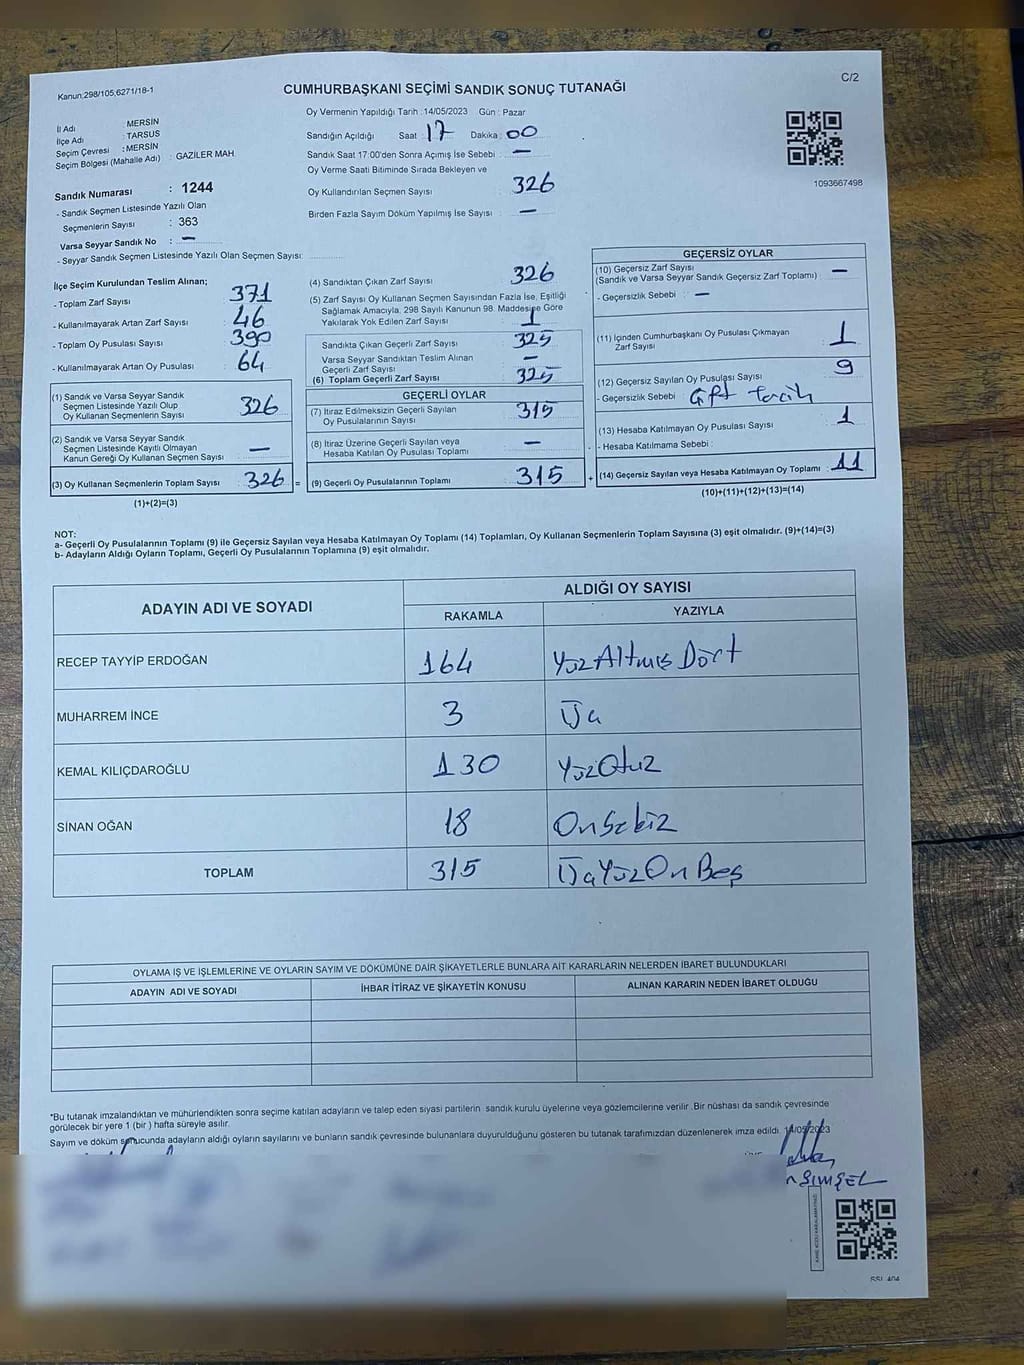 C/2
Kanun:298/105,6271/18-1
CUMHURBAŞKANI SEÇİMİ SANDIK SONUÇ TUTANAĞI
İl Adı : MERSİN
İlçe Adı : TARSUS
Seçim Çevresi : MERSİN
Seçim Bölgesi (Mahalle Adı) : GAZİLER MAH
Sandık Numarası : 1244
- Sandık Seçmen Listesinde Yazılı Olan
Seçmenlerin Sayısı : 363
Varsa Seyyar Sandık No : —
- Seyyar Sandık Seçmen Listesinde Yazılı Olan Seçmen Sayısı:
Oy Vermenin Yapıldığı Tarih :14/05/2023 Gün : Pazar
Sandığın Açıldığı Saat : 17 Dakika : 00
Sandık Saat 17:00'den Sonra Açımış İse Sebebi : —
Oy Verme Saati Bitiminde Sırada Bekleyen ve
Oy Kullandırılan Seçmen Sayısı : 326
Birden Fazla Sayım Döküm Yapılmış İse Sayısı : —
1093667498
İlçe Seçim Kurulundan Teslim Alınan;
- Toplam Zarf Sayısı : 371
- Kullanılmayarak Artan Zarf Sayısı : 46
- Toplam Oy Pusulası Sayısı : 390
- Kullanılmayarak Artan Oy Pusulası : 64
(1) Sandık ve Varsa Seyyar Sandık
Seçmen Listesinde Yazılı Olup
Oy Kullanan Seçmenlerin Sayısı : 326
(2) Sandık ve Varsa Seyyar Sandık
Seçmen Listesinde Kayıtlı Olmayan
Kanun Gereği Oy Kullanan Seçmen Sayısı : —
(3) Oy Kullanan Seçmenlerin Toplam Sayısı : 326 =
(1)+(2)=(3)
(4) Sandıktan Çıkan Zarf Sayısı : 326
(5) Zarf Sayısı Oy Kullanan Seçmen Sayısından Fazla İse, Eşitliği
Sağlamak Amacıyla, 298 Sayılı Kanunun 98. Maddesine Göre
Yakılarak Yok Edilen Zarf Sayısı : 1
Sandıkta Çıkan Geçerli Zarf Sayısı : 325
Varsa Seyyar Sandıktan Teslim Alınan
Geçerli Zarf Sayısı : —
(6) Toplam Geçerli Zarf Sayısı : 325
GEÇERLİ OYLAR
(7) İtiraz Edilmeksizin Geçerli Sayılan
Oy Pusulası Sayısı : 315
(8) İtiraz Üzerine Geçerli Sayılan veya
Hesaba Katılan Oy Pusulası Toplamı : —
(9) Geçerli Oy Pusulalarının Toplamı : 315 +
GEÇERSİZ OYLAR
(10) Geçersiz Zarf Sayısı
(Sandık ve Varsa Seyyar Sandık Geçersiz Zarf Toplamı) : —
- Geçersizlik Sebebi : —
(11) İçinden Cumhurbaşkanı Oy Pusulası Çıkmayan
Zarf Sayısı : 1
(12) Geçersiz Sayılan Oy Pusulası Sayısı : 9
- Geçersizlik Sebebi : Çift tercih
(13) Hesaba Katılmayan Oy Pusulası Sayısı : 1
- Hesaba Katılmama Sebebi :
(14) Geçersiz Sayılan veya Hesaba Katılmayan Oy Toplamı : 11
(10)+(11)+(12)+(13)=(14)
NOT:
a- Geçerli Oy Pusulalarının Toplamı (9) ile Geçersiz Sayılan veya Hesaba Katılmayan Oy Toplamı (14) Toplamları, Oy Kullanan Seçmenlerin Toplam Sayısına (3) eşit olmalıdır. (9)+(14)=(3)
b- Adayların Aldığı Oyların Toplamı, Geçerli Oy Pusulalarının Toplamına (9) eşit olmalıdır.
ADAYIN ADI VE SOYADI ALDIĞI OY SAYISI
RAKAMLA YAZIYLA
RECEP TAYYİP ERDOĞAN 164 YüzAltmış Dört
MUHARREM İNCE 3 Üç
KEMAL KILIÇDAROĞLU 130 YüzOtuz
SİNAN OĞAN 18 OnSekiz
TOPLAM 315 ÜçYüzOnBeş
OYLAMA İŞ VE İŞLEMLERİNE VE OYLARIN SAYIM VE DÖKÜMÜNE DAİR ŞİKAYETLERLE BUNLARA AİT KARARLARIN NELERDEN İBARET BULUNDUKLARI
ADAYIN ADI VE SOYADI İHBAR İTİRAZ VE ŞİKAYETİN KONUSU ALINAN KARARIN NEDEN İBARET OLDUĞU
*Bu tutanak imzalandıktan ve mühürlendikten sonra seçime katılan adayların ve talep eden siyasi partilerin sandık kurulu üyelerine veya gözlemcilerine verilir .Bir nüshası da sandık çevresinde
görülecek bir yere 1 (bir ) hafta süreyle asılır.
Sayım ve döküm sonucunda adayların aldığı oyların sayılarını ve bunların sandık çevresinde bulunanlara duyurulduğunu gösteren bu tutanak tarafımızdan düzenlenerek imza edildi. 14/05/2023
ŞİMŞEL